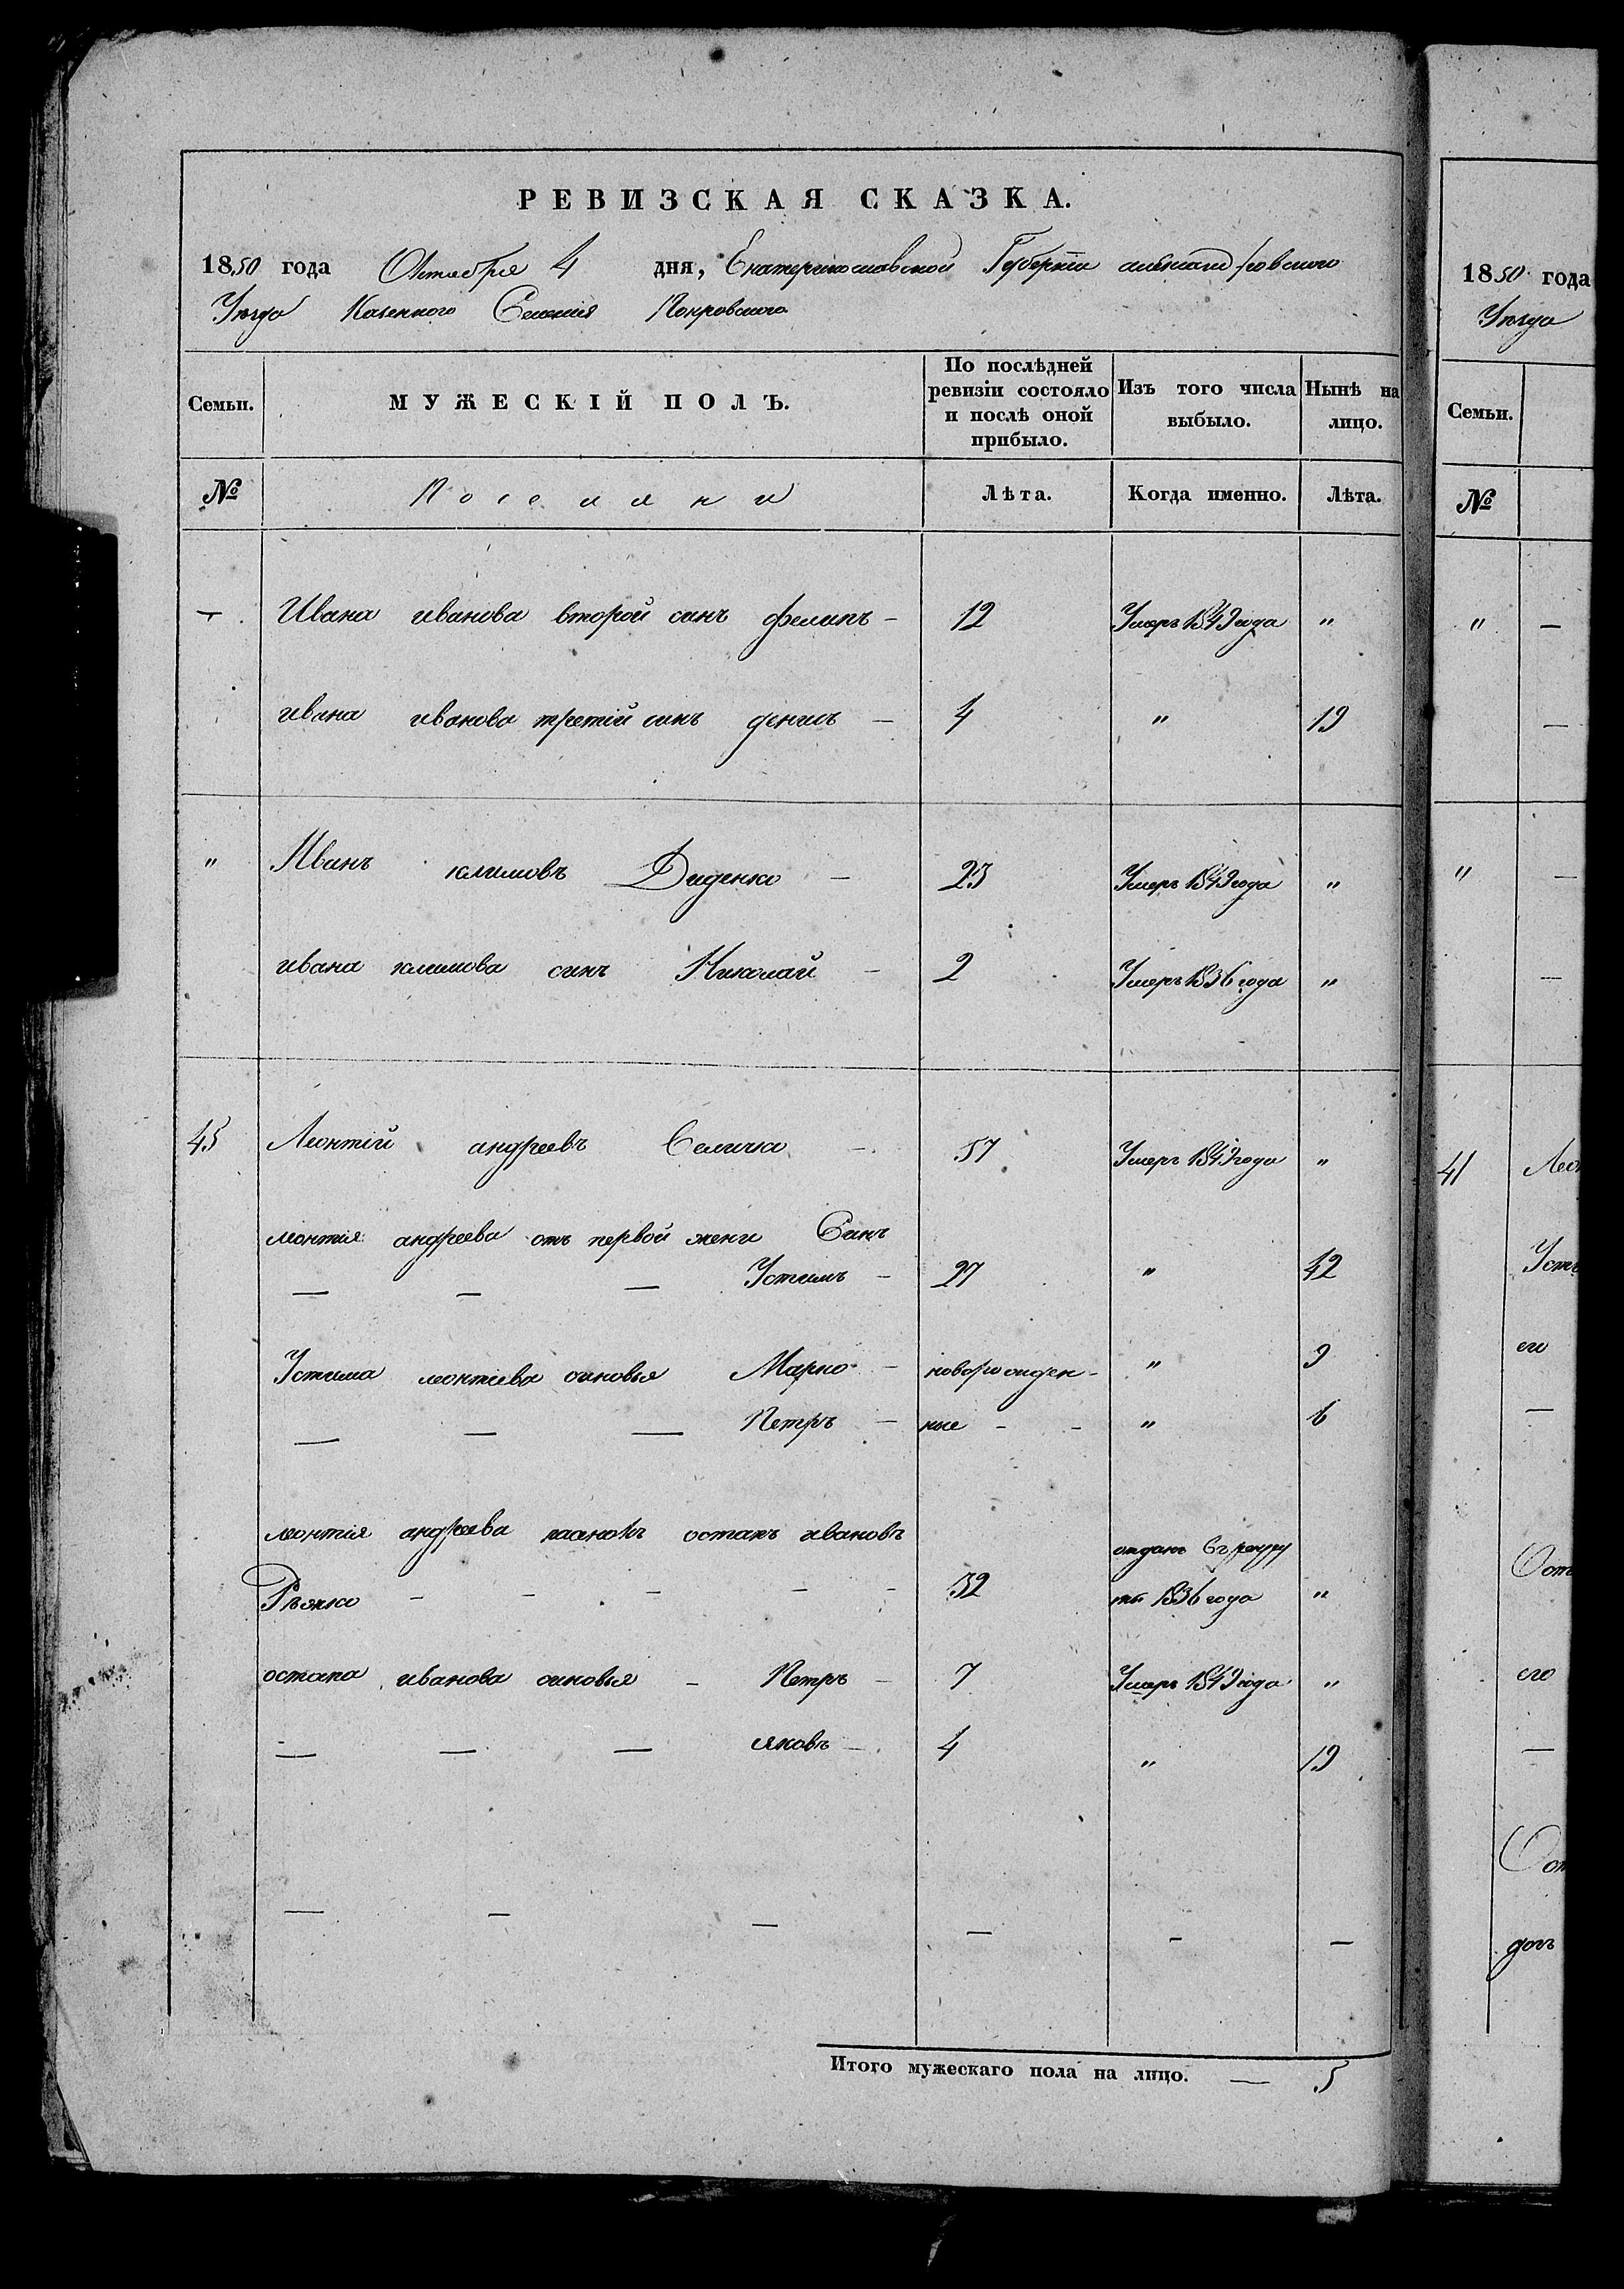 РЕВИЗСКАЯ СКАЗКА.
1850 года Октября 4 дня, Екатеринославской Губерніи александровского
Уезда Казенного Селенія Покровского
Семьи. МУЖЕСКІЙ ПОЛЪ. По послѣдней ревизіи состояло и послѣ оной прибыло. Изъ того числа выбыло. Нынѣ на лицо.
№ Поселяни Лѣта. Когда именно. Лѣта.
Ивана иванова второй синъ филипъ - 12 Умеръ 1849 года "
ивана иванова третій синъ денисъ - 4 " 19
" Иванъ климовъ Диденко - 23 Умеръ 1849 года "
ивана климова синъ Николай - 2 Умеръ 1836 года "
45 Леонтій андреевъ Селичка - 57 Умеръ 1849 года "
леонтія андреева отъ первой жени Синъ
— — — Устимъ - 27 " 42
Устима леонтіева синовья Марко - новорожден- " 9
— — — Петръ - ные - - " 6
леонтія андреева остапъ ивановъ отданъ въ рекру
- - - - - 32 ты 1836 года "
остапа иванова синовья - Петръ - 7 Умеръ 1849 года "
— — — яковъ - 4 " 19
— — — — - —
Итого мужескаго пола на лицо. — 5
1850 года
Уезда
Семьи.
№
" —
—
" —
—
41 Леон
Усти
его
—
Оста
его
—
дочь